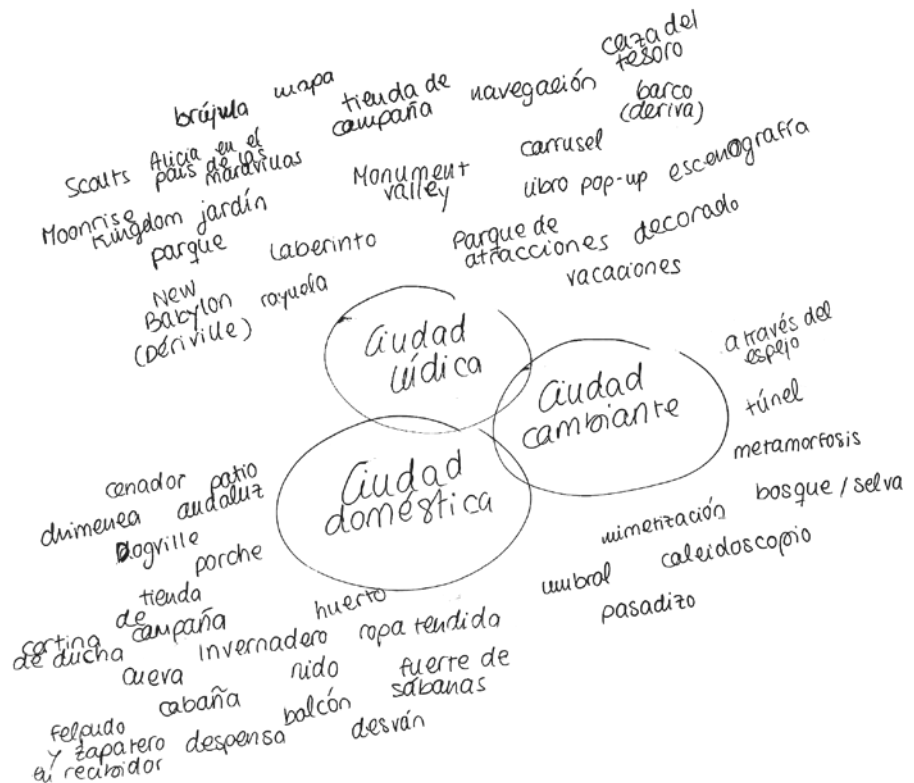 caza del
tesoro
brújula
mapa
tienda de
campaña
navegación
barco
(deriva)
Scouts
Alicia en el
país de las
maravillas
Monument
valley
carrusel
libro pop-up
escenografía
Moonrise
Kingdom
jardín
parque
laberinto
Parque de
atracciones
decorado
vacaciones
New
Babylon
(Dériville)
rayuela
Ciudad
lúdica
Ciudad
cambiante
a través del
espejo
túnel
metamorfosis
bosque / selva
mimetización
caleidoscopio
umbral
pasadizo
Ciudad
doméstica
cenador
patio
andaluz
chimenea
Dogville
porche
tienda
de
campaña
cortina
de ducha
huerto
invernadero
ropa tendida
cueva
nido
fuerte de
sábanas
cabaña
balcón
felpudo
y zapatero
en recibidor
despensa
desván